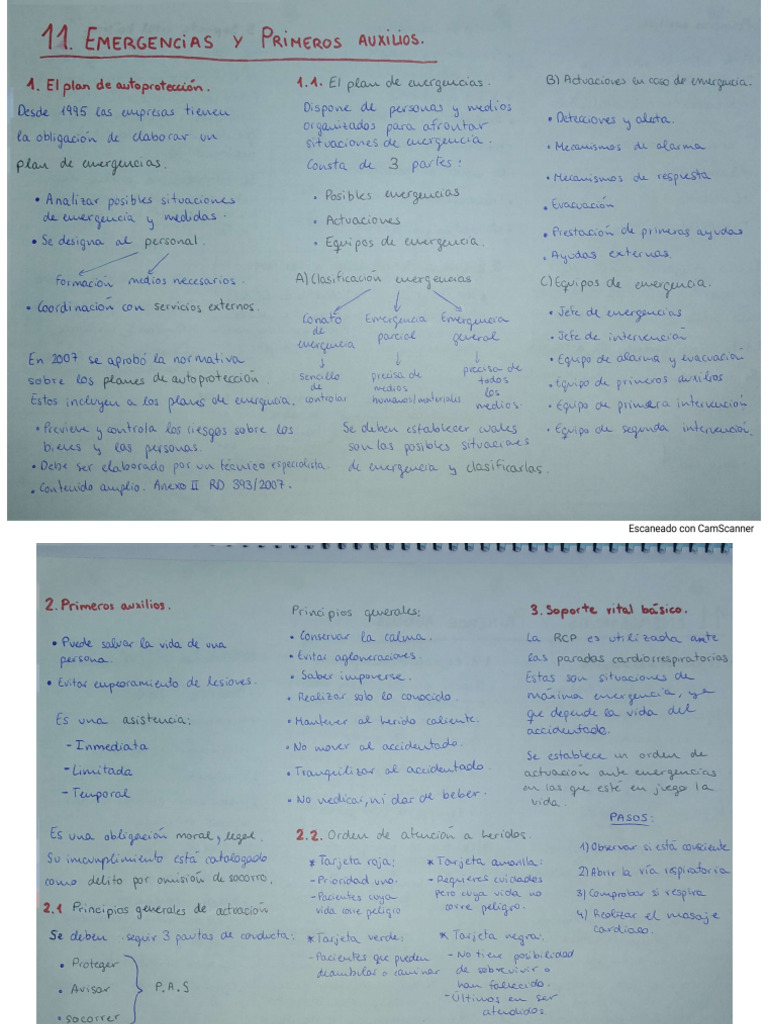 11. EMERGENCIAS Y PRIMEROS AUXILIOS.
1. El plan de autoprotección.
Desde 1995 las empresas tienen
la obligación de elaborar un
plan de emergencias.
• Analizar posibles situaciones
de emergencia y medidas.
• Se designa al personal.
Formación medios necesarios.
• Coordinación con servicios externos.
En 2007 se aprobó la normativa
sobre los planes de autoprotección.
Estos incluyen a los planes de emergencia.
• Previene y controla los riesgos sobre los
bienes y las personas.
• Debe ser elaborado por un técnico especialista.
• Contenido amplio. Anexo II RD 393/2007.
1.1. El plan de emergencias.
Dispone de personas y medios
organizados para afrontar
situaciones de emergencia.
Consta de 3 partes:
• Posibles emergencias
• Actuaciones
• Equipos de emergencia.
A) Clasificación emergencias
Conato de emergencia
sencillo de controlar
Emergencia parcial
precisa de medios humanos/materiales
Emergencia general
precisa de todos los medios
Se deben establecer cuales
son las posibles situaciones
de emergencia y clasificarlas.
B) Actuaciones en caso de emergencia.
• Detecciones y aleta.
• Mecanismos de alarma
• Mecanismos de respuesta
• Evacuación
• Prestación de primeras ayudas
• Ayudas externas.
C) Equipos de emergencia.
• Jefe de emergencias
• Jefe de intervención
• Equipo de alarma y evacuación
• Equipo de primeros auxilios
• Equipo de primera intervención
• Equipo de segunda intervención.
Escaneado con CamScanner
2. Primeros auxilios.
• Puede salvar la vida de una
persona.
• Evitar empeoramiento de lesiones.
Es una asistencia:
- Inmediata
- Limitada
- Temporal
Es una obligación moral, legal.
Su incumplimiento está catalogado
como delito por omisión de socorro.
2.1 Principios generales de actuación
Se deben seguir 3 pautas de conducta:
• Proteger
• Avisar
• socorrer
P.A.S
Principios generales:
• Conservar la calma.
• Evitar aglomeraciones.
• Saber imponerse.
• Realizar solo lo conocido.
• Mantener al herido caliente.
• No mover al accidentado.
• Tranquilizar al accidentado.
• No medicar, ni dar de beber.
2.2. Orden de atención a heridos.
* Tarjeta roja:
- Prioridad uno.
- Pacientes cuya
vida corre peligro
* Tarjeta amarilla:
- Requieres cuidados
pero cuya vida no
corre peligro.
* Tarjeta verde:
- Pacientes que pueden
deambular o caminar
* Tarjeta negra:
- No tiene posibilidad
de sobrevivir o
han fallecido.
- Últimos en ser
atendidos
3. Soporte vital básico.
La RCP es utilizada ante
las paradas cardiorrespiratorias.
Estas son situaciones de
máxima emergencia, ya
que depende la vida del
accidentado.
Se establece un orden de
actuación ante emergencias
en las que esté en juego la
vida.
PASOS:
1) Observar si está consciente
2) Abrir la vía respiratoria
3) Comprobar si respira
4) Realizar el masaje
cardiaco.